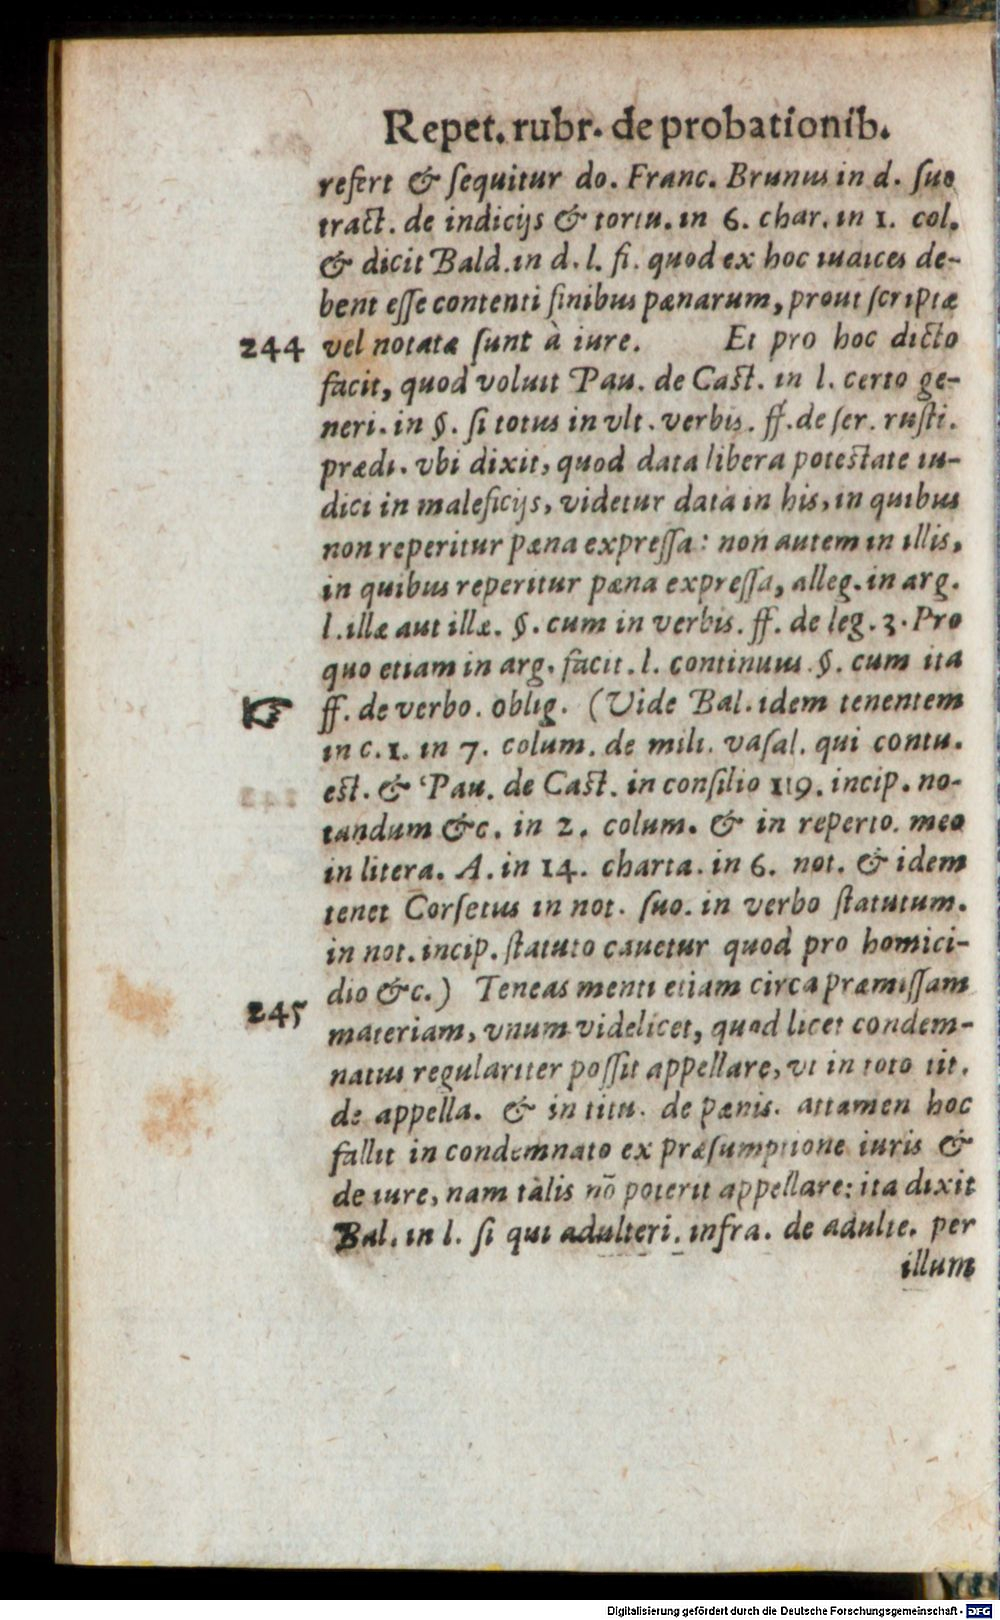 Repet. rubr. de probationib.
refert & ſequitur do. Franc. Brunus in d. ſuo
tract. de indicijs & tortu. in 6. char. in 1. col.
& dicit Bald. in d. l. fi. quod ex hoc iudices de-
bent eſſe contenti finibus pænarum, prout ſcriptæ
244 vel notatæ ſunt à iure. Et pro hoc dicto
facit, quod voluit Pau. de Caſt. in l. certo ge-
neri. in §. ſi totus in vlt. verbis. ff. de ſer. ruſti.
prædi. vbi dixit, quod data libera poteſtate iu-
dici in maleficijs, videtur data in his, in quibus
non reperitur pæna expreſſa: non autem in illis,
in quibus reperitur pæna expreſſa, alleg. in arg.
l. illæ aut illæ. §. cum in verbis. ff. de leg. 3. Pro
quo etiam in arg. facit. l. continuus §. cum ita
☞ ff. de verbo. oblig. (Vide Bal. idem tenentem
in c. 1. in 7. colum. de mili. vaſal. qui contu.
eſt. & Pau. de Caſt. in conſilio 119. incip. no-
tandum &c. in 2. colum. & in reperto. meo
in litera. A. in 14. charta. in 6. not. & idem
tenet Corſetus in not. ſuo. in verbo ſtatutum.
in not. incip. ſtatuto cauetur quod pro homici-
dio &c.) Teneas menti etiam circa præmiſſam
245 materiam, vnum videlicet, quod licet condem-
natus regulariter poſſit appellare, vt in toto tit.
de appella. & in titu. de pænis. attamen hoc
fallit in condemnato ex præſumptione iuris &
de iure, nam talis nō poterit appellare: ita dixit
Bal. in l. ſi qui adulteri. infra. de adulte. per
illum
Digitalisierung gefördert durch die Deutsche Forschungsgemeinschaft - DFG